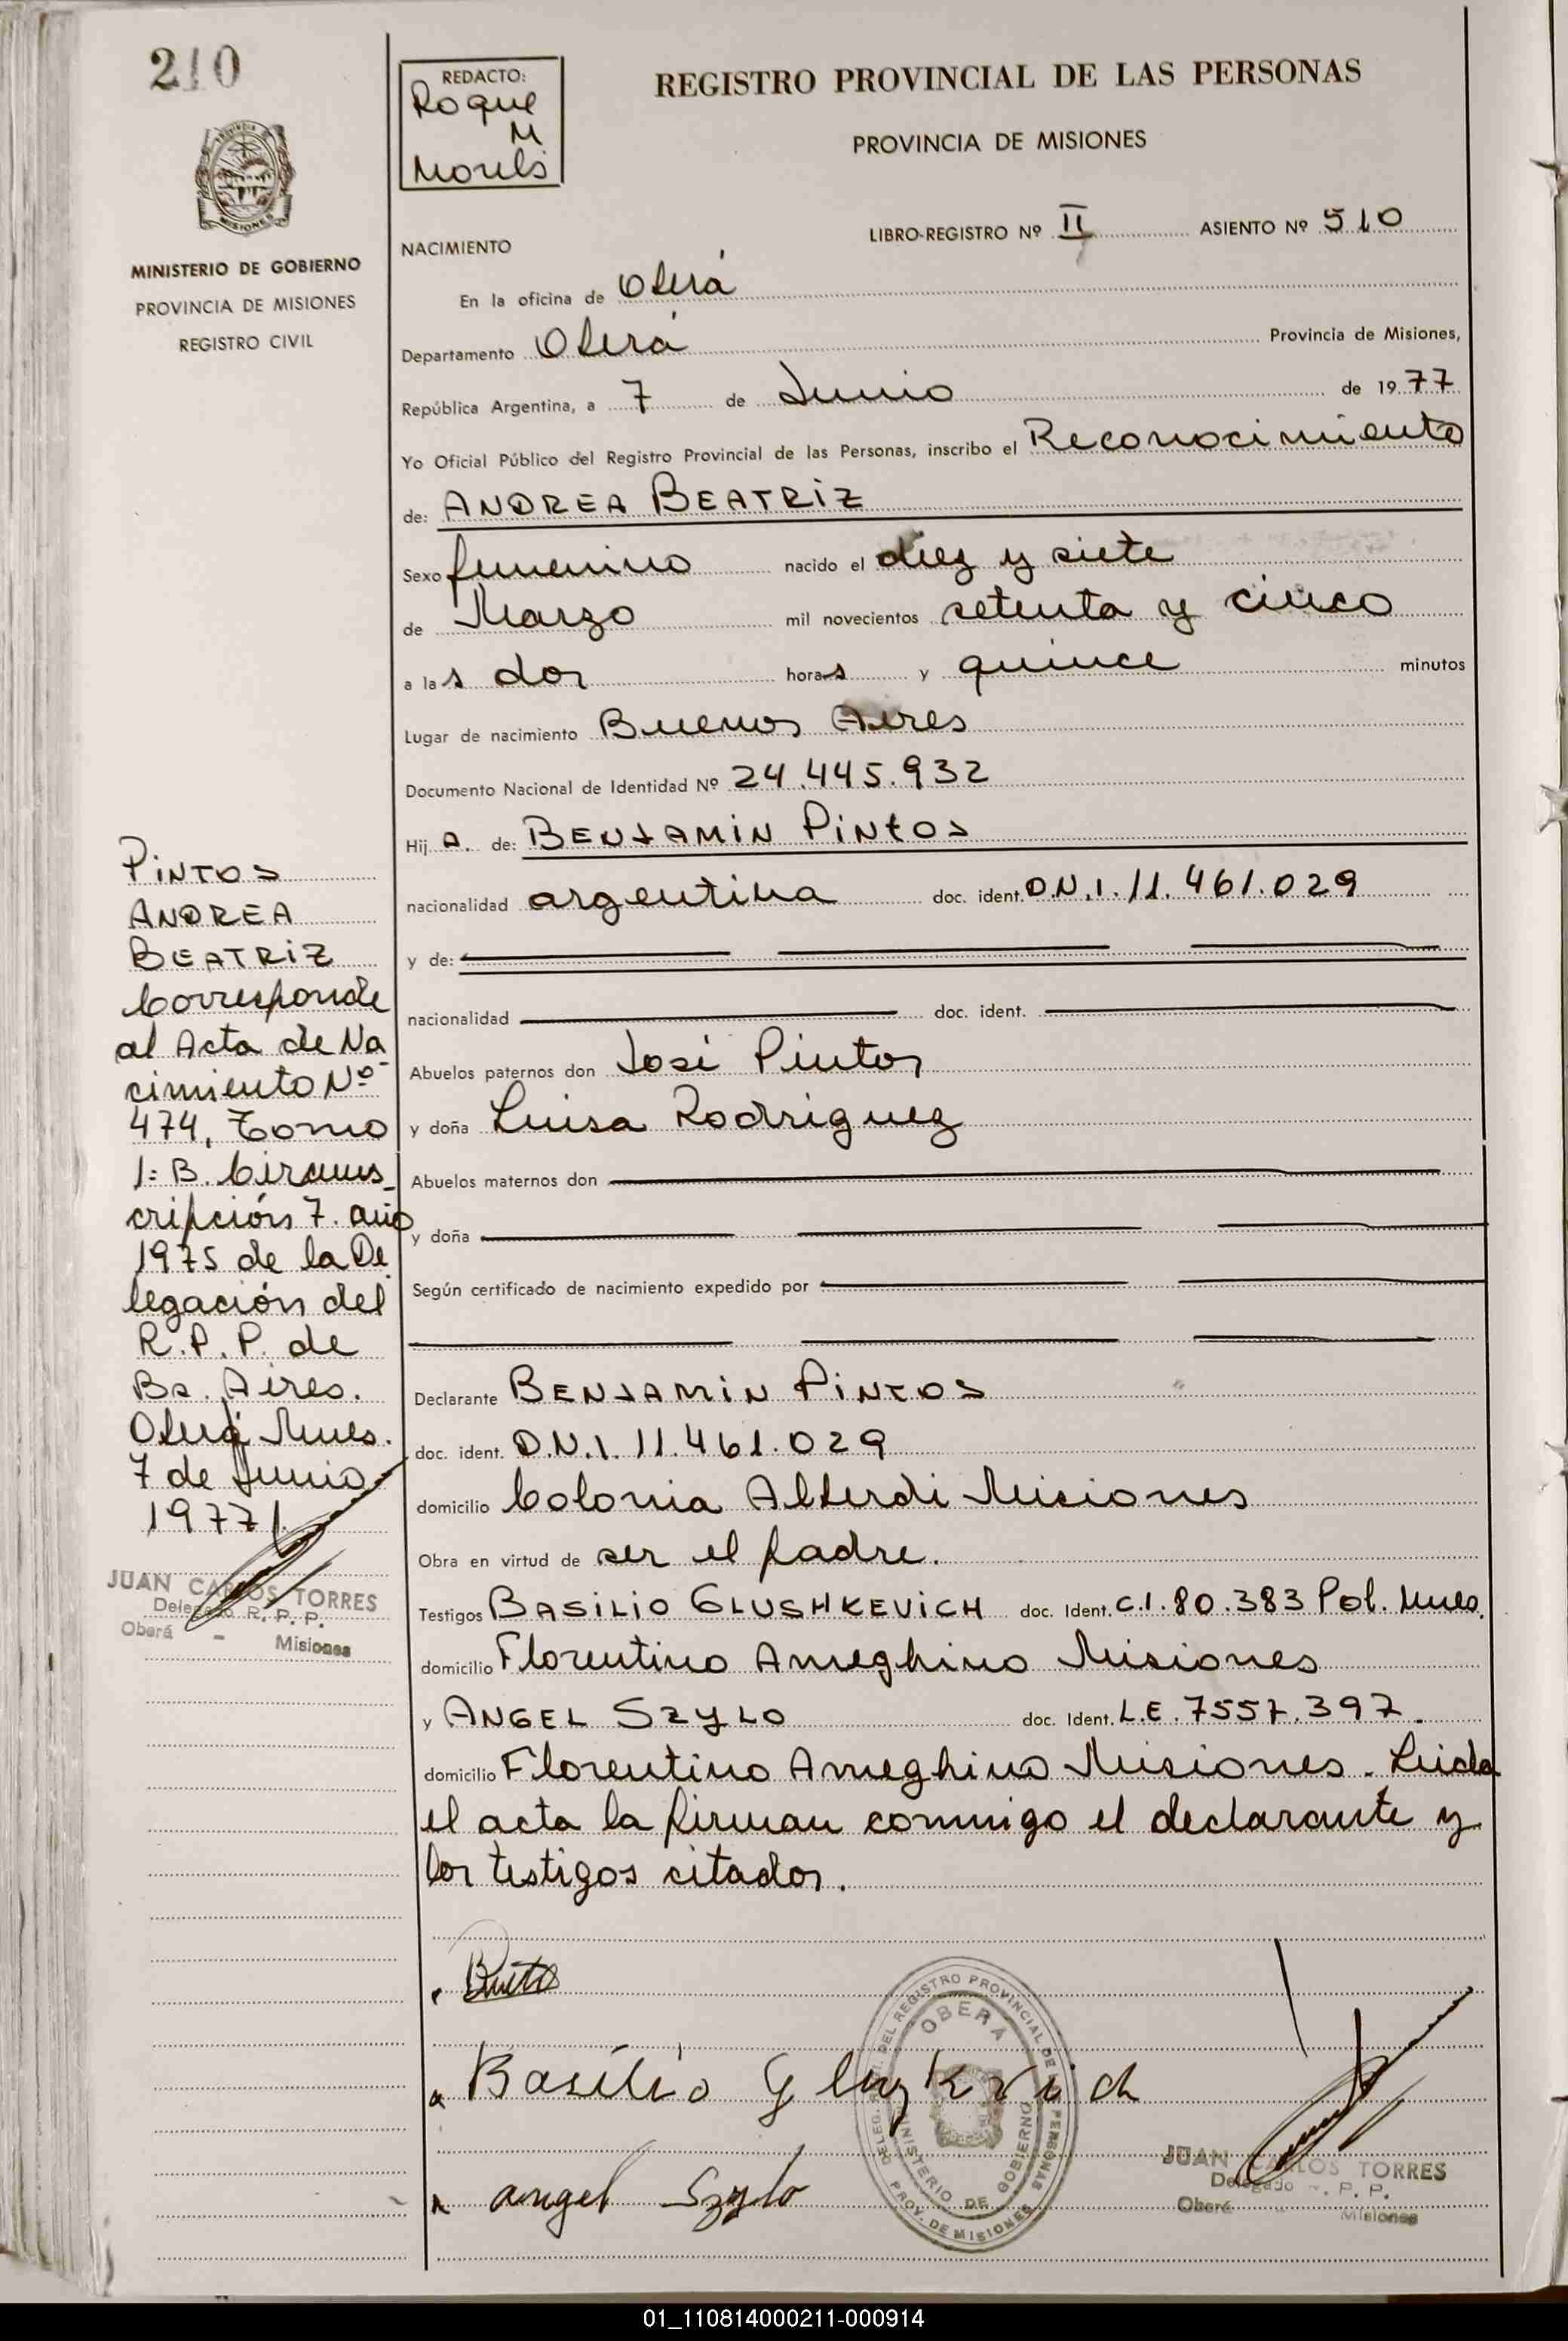 210
REDACTO:
Roque
M
Morels
REGISTRO PROVINCIAL DE LAS PERSONAS
PROVINCIA DE MISIONES
PROVINCIA DE
MISIONES
MINISTERIO DE GOBIERNO
PROVINCIA DE MISIONES
REGISTRO CIVIL
LIBRO-REGISTRO Nº II ASIENTO Nº 510
NACIMIENTO
En la oficina de Oberá
Departamento Oberá Provincia de Misiones,
República Argentina, a 7 de Junio de 1977
Yo Oficial Público del Registro Provincial de las Personas, inscribo el Reconocimiento
de: ANDREA BEATRIZ
Sexo femenino nacido el diez y siete
de Marzo mil novecientos setenta y cinco
a las dos horas y quince minutos
Lugar de nacimiento Buenos Aires
Documento Nacional de Identidad Nº 24.445.932
Hij A. de: BENJAMIN PINTOS
nacionalidad argentina doc. ident. D.N.I. 11.461.029
y de:
nacionalidad doc. ident.
Abuelos paternos don José Pintos
y doña Luisa Rodriguez
Abuelos maternos don
y doña
Según certificado de nacimiento expedido por
Declarante BENJAMIN PINTOS
doc. ident. D.N.I. 11.461.029
domicilio Colonia Alberdi Misiones
Obra en virtud de ser el padre.
Testigos BASILIO GLUSHKEVICH doc. Ident. C.I. 80.383 Pol. Mnes.
domicilio Florentino Ameghino Misiones
y ANGEL SZYLO doc. Ident. L.E. 7557.397.
domicilio Florentino Ameghino Misiones. Leida
el acta la firman conmigo el declarante y
los testigos citados.
PINTOS
ANDREA
BEATRIZ
Corresponde
al Acta de Na-
cimiento Nº
474, Tomo
1: B. Circuns-
cripción 7. año
1975 de la De
legación del
R.P.P. de
Bs. Aires.
Oberá Mnes.
7 de Junio
1977
JUAN CARLOS TORRES
Delegado R. P. P.
Oberá - Misiones
Basilio
angel Szylo
DEL REGISTRO PROVINCIAL DE LAS PERSONAS
OBERA
MINISTERIO DE GOBIERNO
PROV. DE MISIONES
JUAN CARLOS TORRES
Delegado R. P. P.
Oberá Misiones
01_110814000211-000914